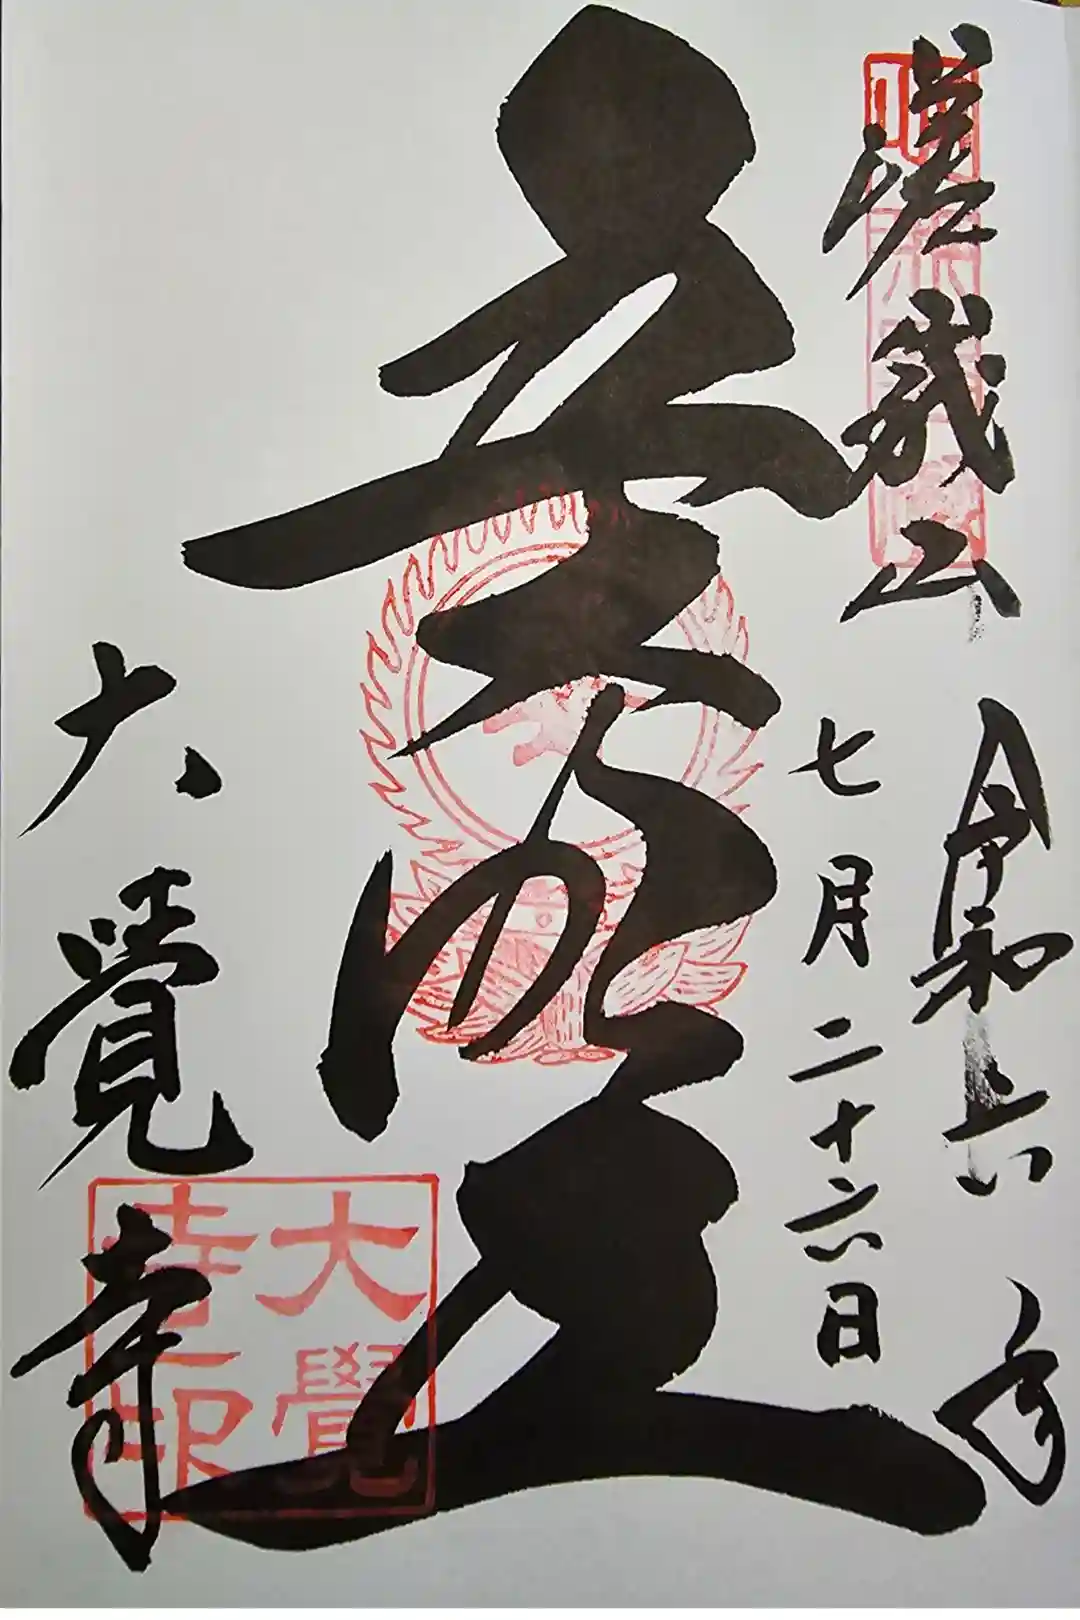 嵯峨山
令和六年
七月二十六日
五大明王
大覺寺
大覺
寺印